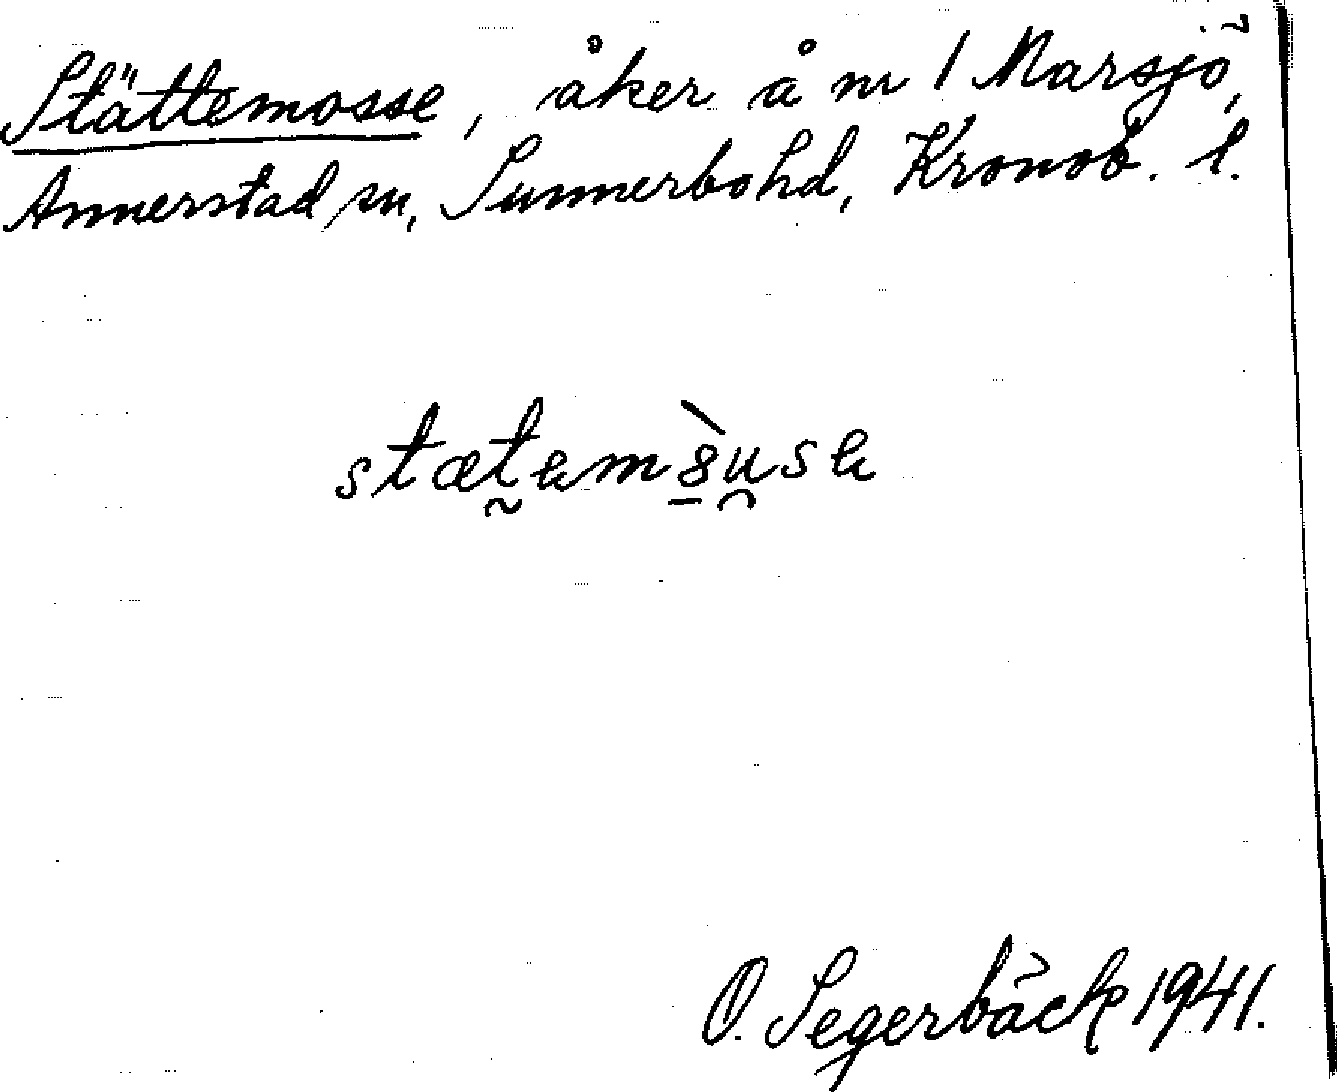 Stättemosse, åker å nr 1 Marsjö,
Annerstad sn, Sunnerbo hd, Kronob. l.
O. Segerbäck 1941.